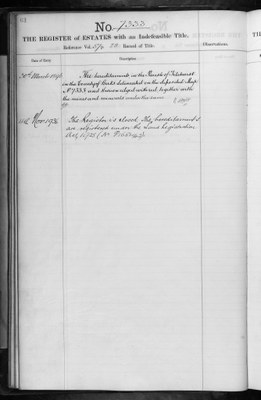 No. 7333
THE REGISTER of ESTATES with an Indefeasible Title.
Reference Vol. Record of Title.
Observations.
Date of Entry. Description
The hereditaments in the Parish of
in the County of delineated on the deposited Map
No 7333 and thereon edged with red together with
the mines and minerals under the same
Nov 1936 The Register is closed. The hereditaments
are registered under the Land Registration
Act, 1925